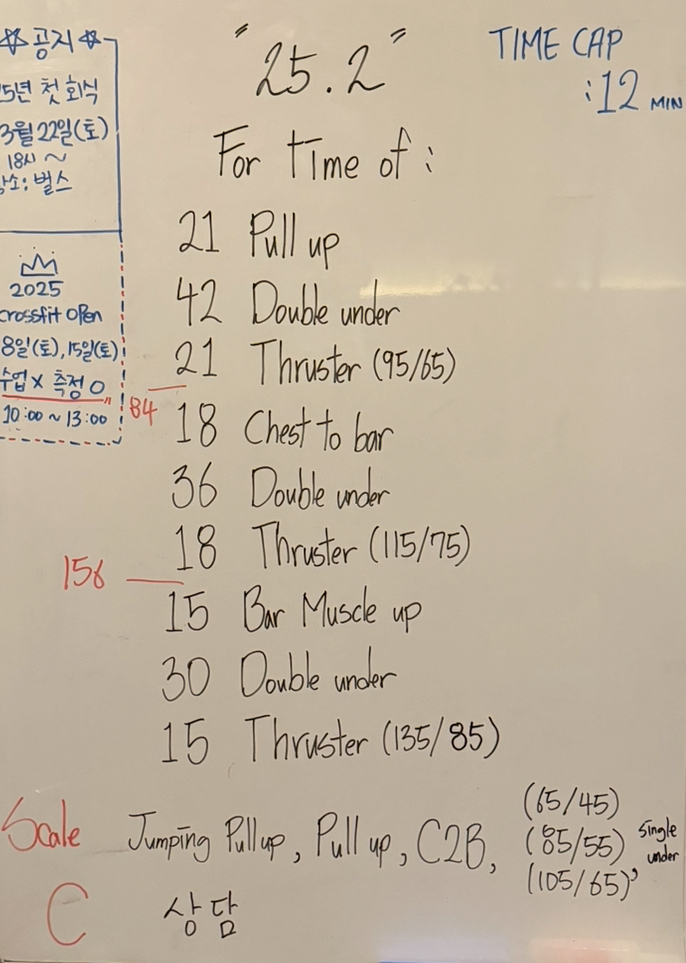 ☆공지☆
5년 첫 회식
3월 22일(토)
18시 ~
장소: 벌스
2025
Crossfit OPen
8일(토), 15일(토)
수업 X 측정 O
10:00 ~ 13:00
"25.2"
TIME CAP
:12 MIN
For time of :
21 Pull up
42 Double under
21 Thruster (95/65)
84
18 Chest to bar
36 Double under
18 Thruster (115/75)
156
15 Bar Muscle up
30 Double under
15 Thruster (135/85)
Scale Jumping Pull up, Pull up, C2B, (65/45)
(85/55)
(105/65),
Single
under
C 상담